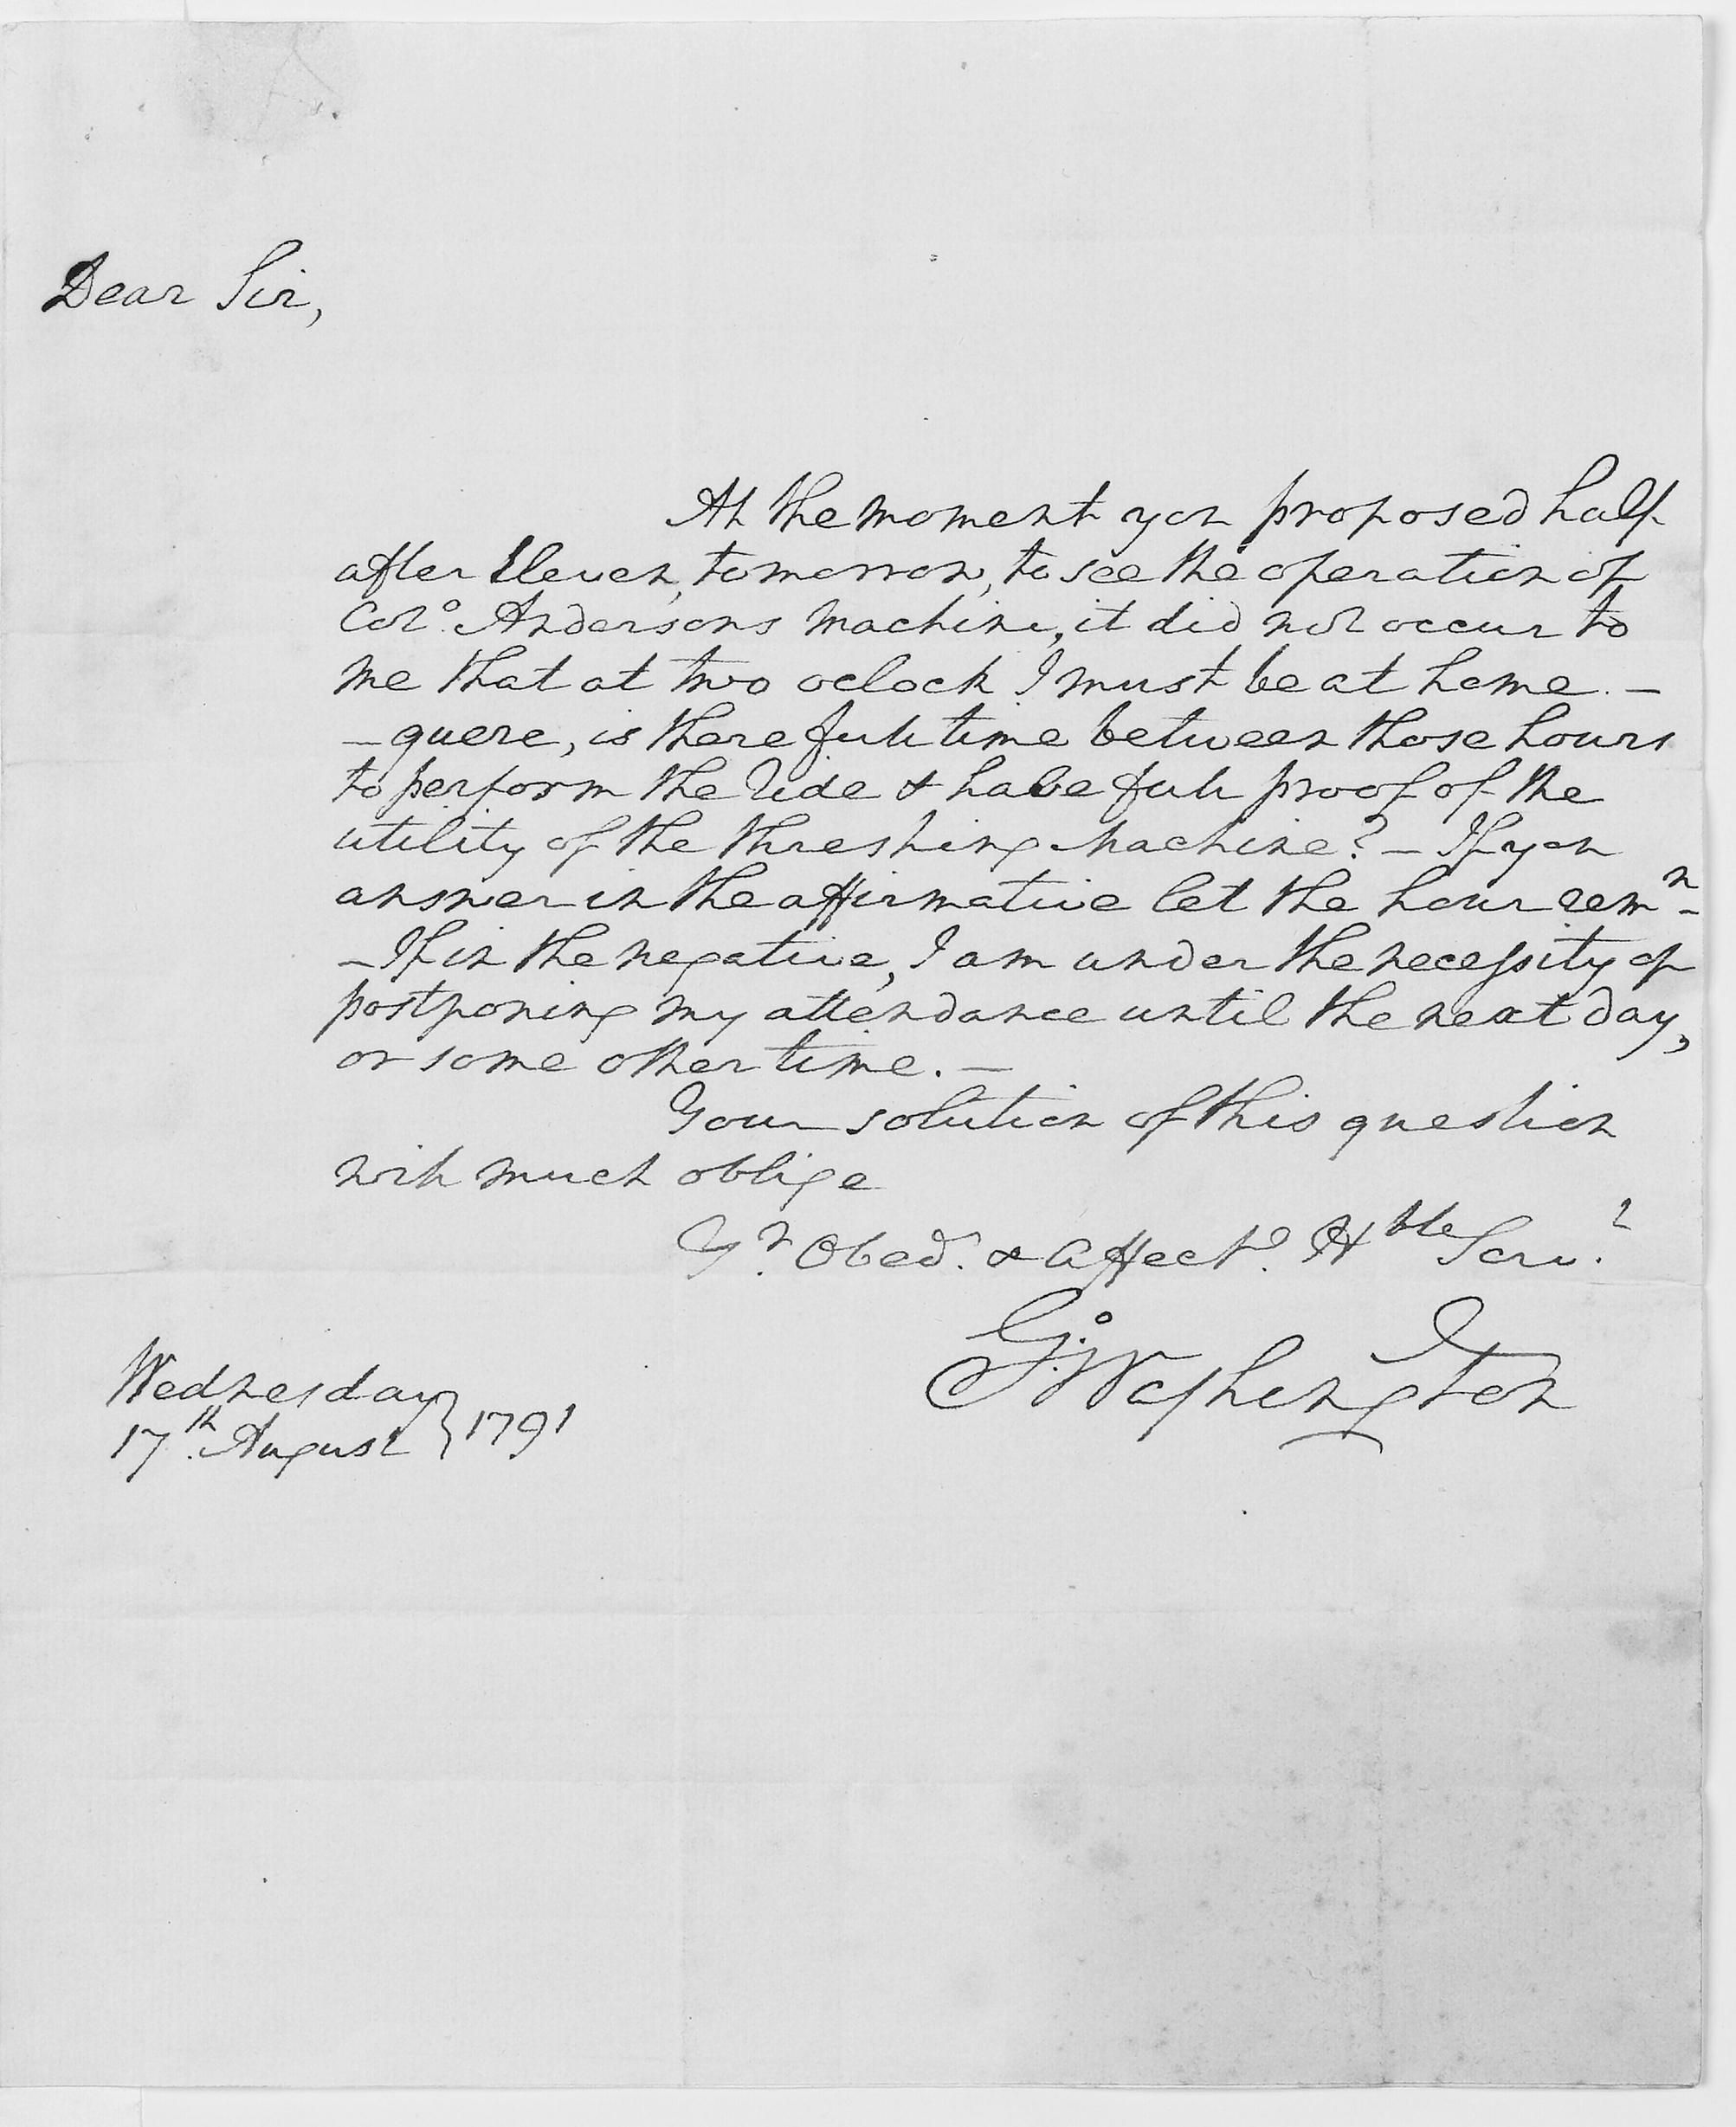 Dear Sir,
At the moment you proposed half
after Eleven, tomorrow, to see the operation of
Colº. Andersons machine, it did not occur to
me that at two oclock I must be at home. —
— quere, is there full time between those hours
to perform the ride & have full proof of the
utility of the threshing machine? — If you
answer in the affirmative let the hour remⁿ —
— If in the negative, I am under the necessity of
postponing my attendance until the next day,
or some other time. —
Your solution of this question
will much oblige
Yr. Obedt. & Affecte. Hble Servt.
Gº. Washington
Wednesday
17th. August } 1791